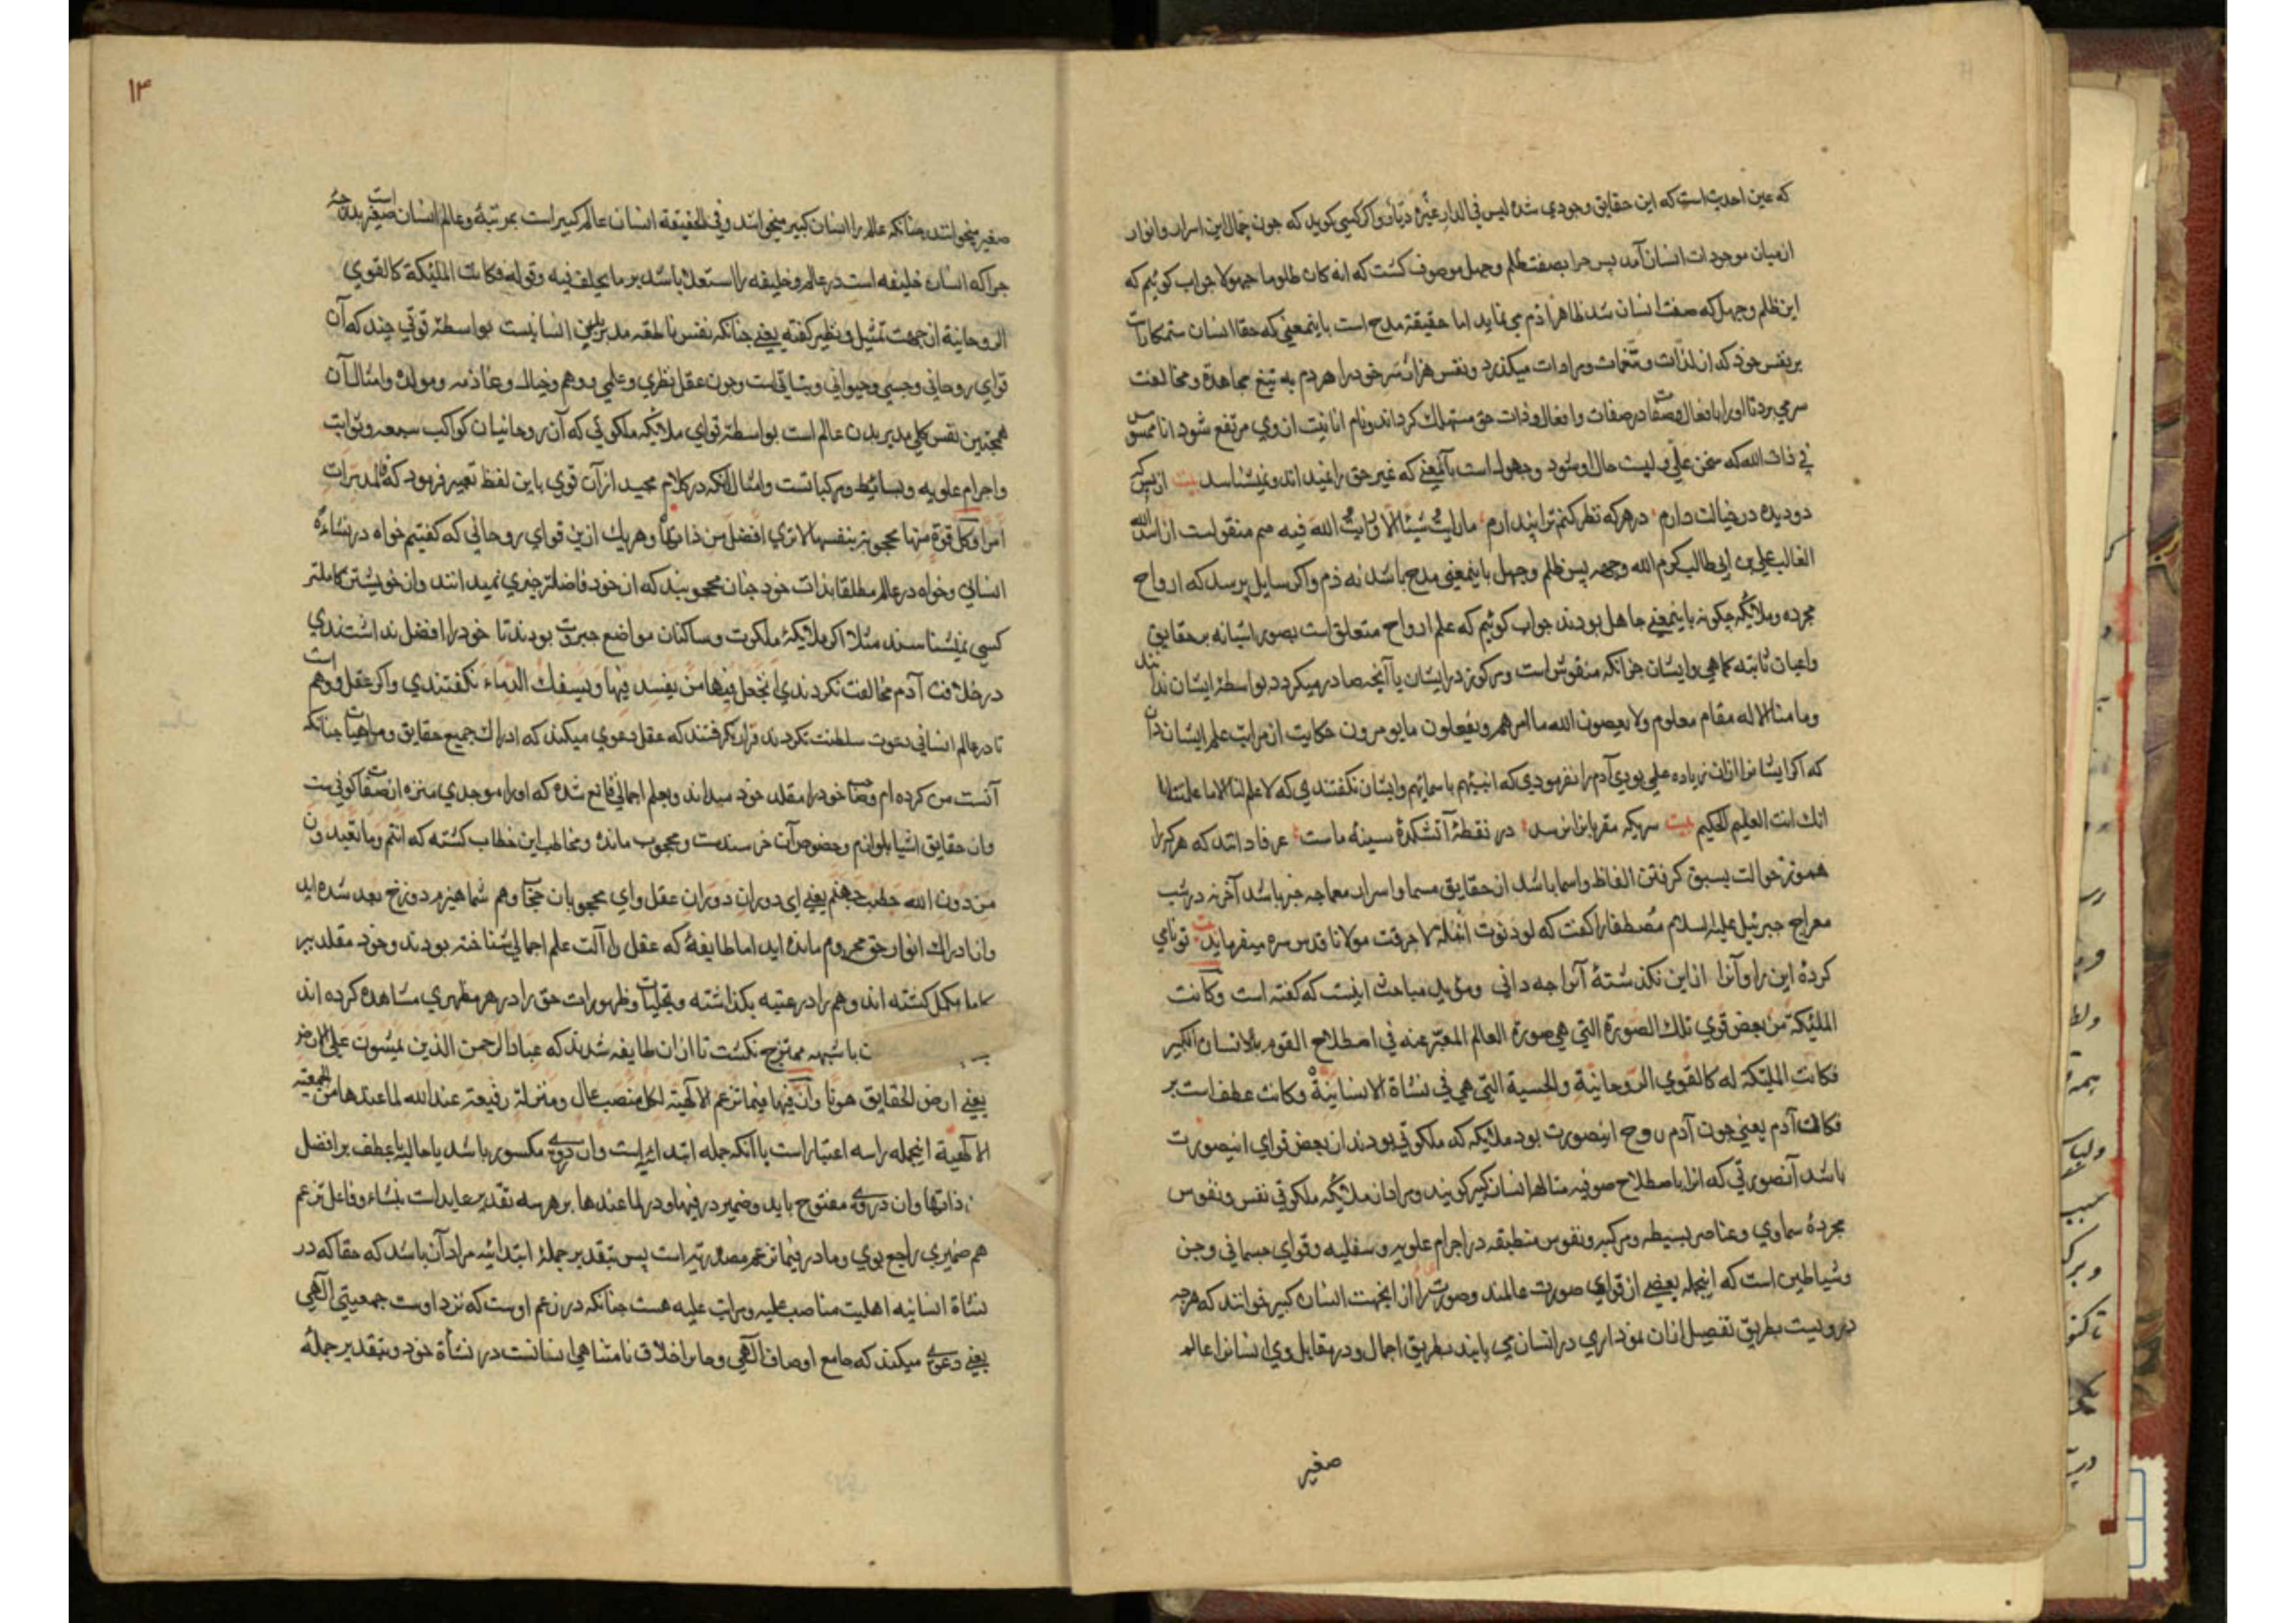 که عین احدیت است که این حقایق وجودی شده لیس فی الدار غیره دیّار و اکر کسی کوید که چون جمال این اسرار و انوار
از میان موجودات انسان آمد پس چرا بصفت ظلم و جهل موصوف کشت که انه کان ظلوما جهولا جواب کوئیم که
این ظلم و جهل که صفت انسان شد ظاهرا ذم می نماید اما حقیقة مدح است باینمعنی که حقا انسان ستمکارست
بر نفس خود که از لذّات و تنعّمات و مرادات میکذرد و نفس خود را هر دم به تیغ مجاهدة و مخالفت
سر می برد تا او را با فعال و صفات در صفات و افعال و ذات حق مستهلک کرداند و نام انانیت از وی مرتفع شود انا ممسوس
فی ذات الله که سخن علی ولیست حال او شود و جهول است بآنمعنی که غیر حق را نمیداند و نمیشناسد بیت از بس که
دو دیده در خیالت دارم در هر که نظر کنم ترا پندارم ما رایتُ شیئا الا و رایتُ الله فیه هم منقولست از اسد الله
الغالب علی بن ابی طالب کرم الله وجهه پس ظلم و جهل باینمعنی مدح باشد نه ذم و اکر سایل پرسد که ارواح
مجرده و ملائکه چکونه باینمعنی جاهل بودند جواب کوئیم که علم ارواح متعلق است بصور اشیا نه بر حقایق
و اعیان ثابته کماهی و ایشان جز آنکه منقوش است و مرکوز در ایشان یا آنچه صادر میکردد بواسطۀ ایشان ندانند
و ما منا الا له مقام معلوم و لا یعصون الله ما امرهم و یفعلون ما یومرون حکایت از مراتب علم ایشان دان
که اکر ایشانرا ازان زیاده علمی بودی آدم را نفرمودی که انبئهم باسمائهم و ایشان نکفتندی که لا علم لنا الا ما علمتنا
انک انت العلیم الحکیم بیت سریکه مقربانرا نرسد در نقطۀ آتشکدۀ سینۀ ماست عرفا دانند که هر کرا
هموز حوالت بسبق کرفتن الفاظ و اسما باشد از حقایق مسما و اسرار معما چه خبر باشد آخر نه در شب
معراج جبرئیل علیه السلام مصطفا را کفت که لو دنوت انملة لاحرقت مولانا قدس سره میفرماید بیت تو نامی
کردۀ این را و آنرا از این نکذشتۀ آنرا چه دانی و مؤید مباحث اینست که کفته است و کانت
الملئکة من بعض قوی تلک الصورة التی هی صورة العالم المعبّر عنه فی اصطلاح القوم بالانسان الکبیر
فکانت الملئکة له کالقوی الروحانیة و الحسیة التی هی فی نشاة الانسانیة و کانت عطف است بر
فکان آدم یعنی چون آدم روح اینصورت بود ملائکه که ملکوتی بودند از بعض قوای اینصورت
باشد آنصورتی که انرا باصطلاح صوفیه متالها انسان کبیر کویند و مراد از ملائکه ملکوتی نفس و نفوس
مجردۀ سماوی و عناصر بسیطه و مرکبه و نفوس منطبقه در اجرام علویه و سفلیه و قوای جسمانی و جن
و شیاطین است که اینجمله بعضی از قوای صورت عالمند و صورت را از اینجهت انسان کبیر خوانند که هرچه
دروست بطریق تفصیل ازان نموداری در انسان می یابند بطریق اجمال و در مقابل وی انسانرا عالم
صغیر
۱۳
صغیر میخوانند چنانکه عالم را انسان کبیر میخوانند و فی الحقیقة انسان عالم کبیر است بمرتبۀ و عالم انسان صغیر است بدرجۀ
چرا که انسان خلیفه است در عالم و خلیفه را استعلا باشد بر ما یخلف فیه و قوله فکانت الملئکة کالقوی
الروحانیة از جهت تمثیل و نظیر کفته یعنی چنانکه نفس ناطقه مدبر بدن انسانیست بواسطۀ قوتی چند که آن
قوای روحانی و حسی و حیوانی و نباتی است و چون عقل نظری و علمی و وهم و خیال و غاذیه و مولده و امثال آن
همچنین نفس کلی مدبر بدن عالم است بواسطۀ قوای ملائکه ملکوتی که آن روحانیان کواکب سبعه و ثوابت
و اجرام علویه و بسائط و مرکباتست و امثال آنکه در کلام مجید از آن قوی باین لفظ تعبیر فرمود که فالمدبرات
امرا و کل قوة منها محجوبة بنفسها لا تری افضل من ذاتها و هریک ازین قوای روحانی که کفتیم خواه در نشاءۀ
انسانی و خواه در عالم مطلقا بذات خود چنان محجوبند که از خود فاضلتر چیزی نمیدانند و از خویشتن کاملتر
کسی نمیشناسند مثلا اکر ملائکۀ ملکوت و ساکنان مواضع جبروت بودند تا خود را افضل نداشتندی
در خلافت آدم مخالفت نکردندی اتجعل فیها من یفسد فیها و یسفک الدماء نکفتندی و اکر عقل و وهم است
تا در عالم انسانی دعوت سلطنت نکردند قرار نکرفتند که عقل دعوی میکند که ادراک جمیع حقایق و ماهیات چنانکه
آنست من کرده ام و صفات خود را مقلد خود میداند و بعلم اجمالی قانع شده که او را موجدی منزه از صفات کونی هست
و از حقایق اشیا بلوازم و خصوص آن خرسندست و محجوب مانده و مخاطب این خطاب کشته که انتم و ما تعبدون
من دون الله حطب جهنم یعنی ای دوران دوران عقل و ای محجوبان حجاب وهم شما هیزم دوزخ بعد شده اید
و از ادراک انوار حق محروم مانده اید اما طایفۀ که عقل را آلت علم اجمالی شناخته بودند و خود مقلد پیر
کامل مکمل کشته اند و هم را در عتبه بکذاشته و بتجلیات و ظهورات حق را در هر مظهری مشاهده کرده اند
با شبهه ممتزج نکشت تا ازان طایفه شدند که عباد الرحمن الذین یمشون علی الارض
یعنی ارض الحقایق هونا و ان فیها فیما تزعم الاهلیة لکل منصب عال و منزلة رفیعة عند الله لما عندها من الجمعیة
الالهیة اینجمله را سه اعتبار است یا آنکه جمله ابتدائیه است و ان دروی مکسور باشد یا حالیه یا عطف بر افضل
ذاتها و ان دروی مفتوح باید و ضمیر در فیها و در لما عندها بر هر سه تقدیر عاید است بنشاء و فاعل تزعم
هم ضمیری راجع بوی و ما در فیما تزعم مصدریه است پس بتقدیر جملۀ ابتدائیه مراد آن باشد که حقا که در
نشاة انسانیه اهلیت مناصب علیه و مراتب علیه هست چنانکه در زعم اوست که نزد اوست جمعیتی الهی
یعنی دعوی میکند که جامع اوصاف الهی و حایز اخلاق نامتناهی انسانست در نشأة خود و بتقدیر جملۀ